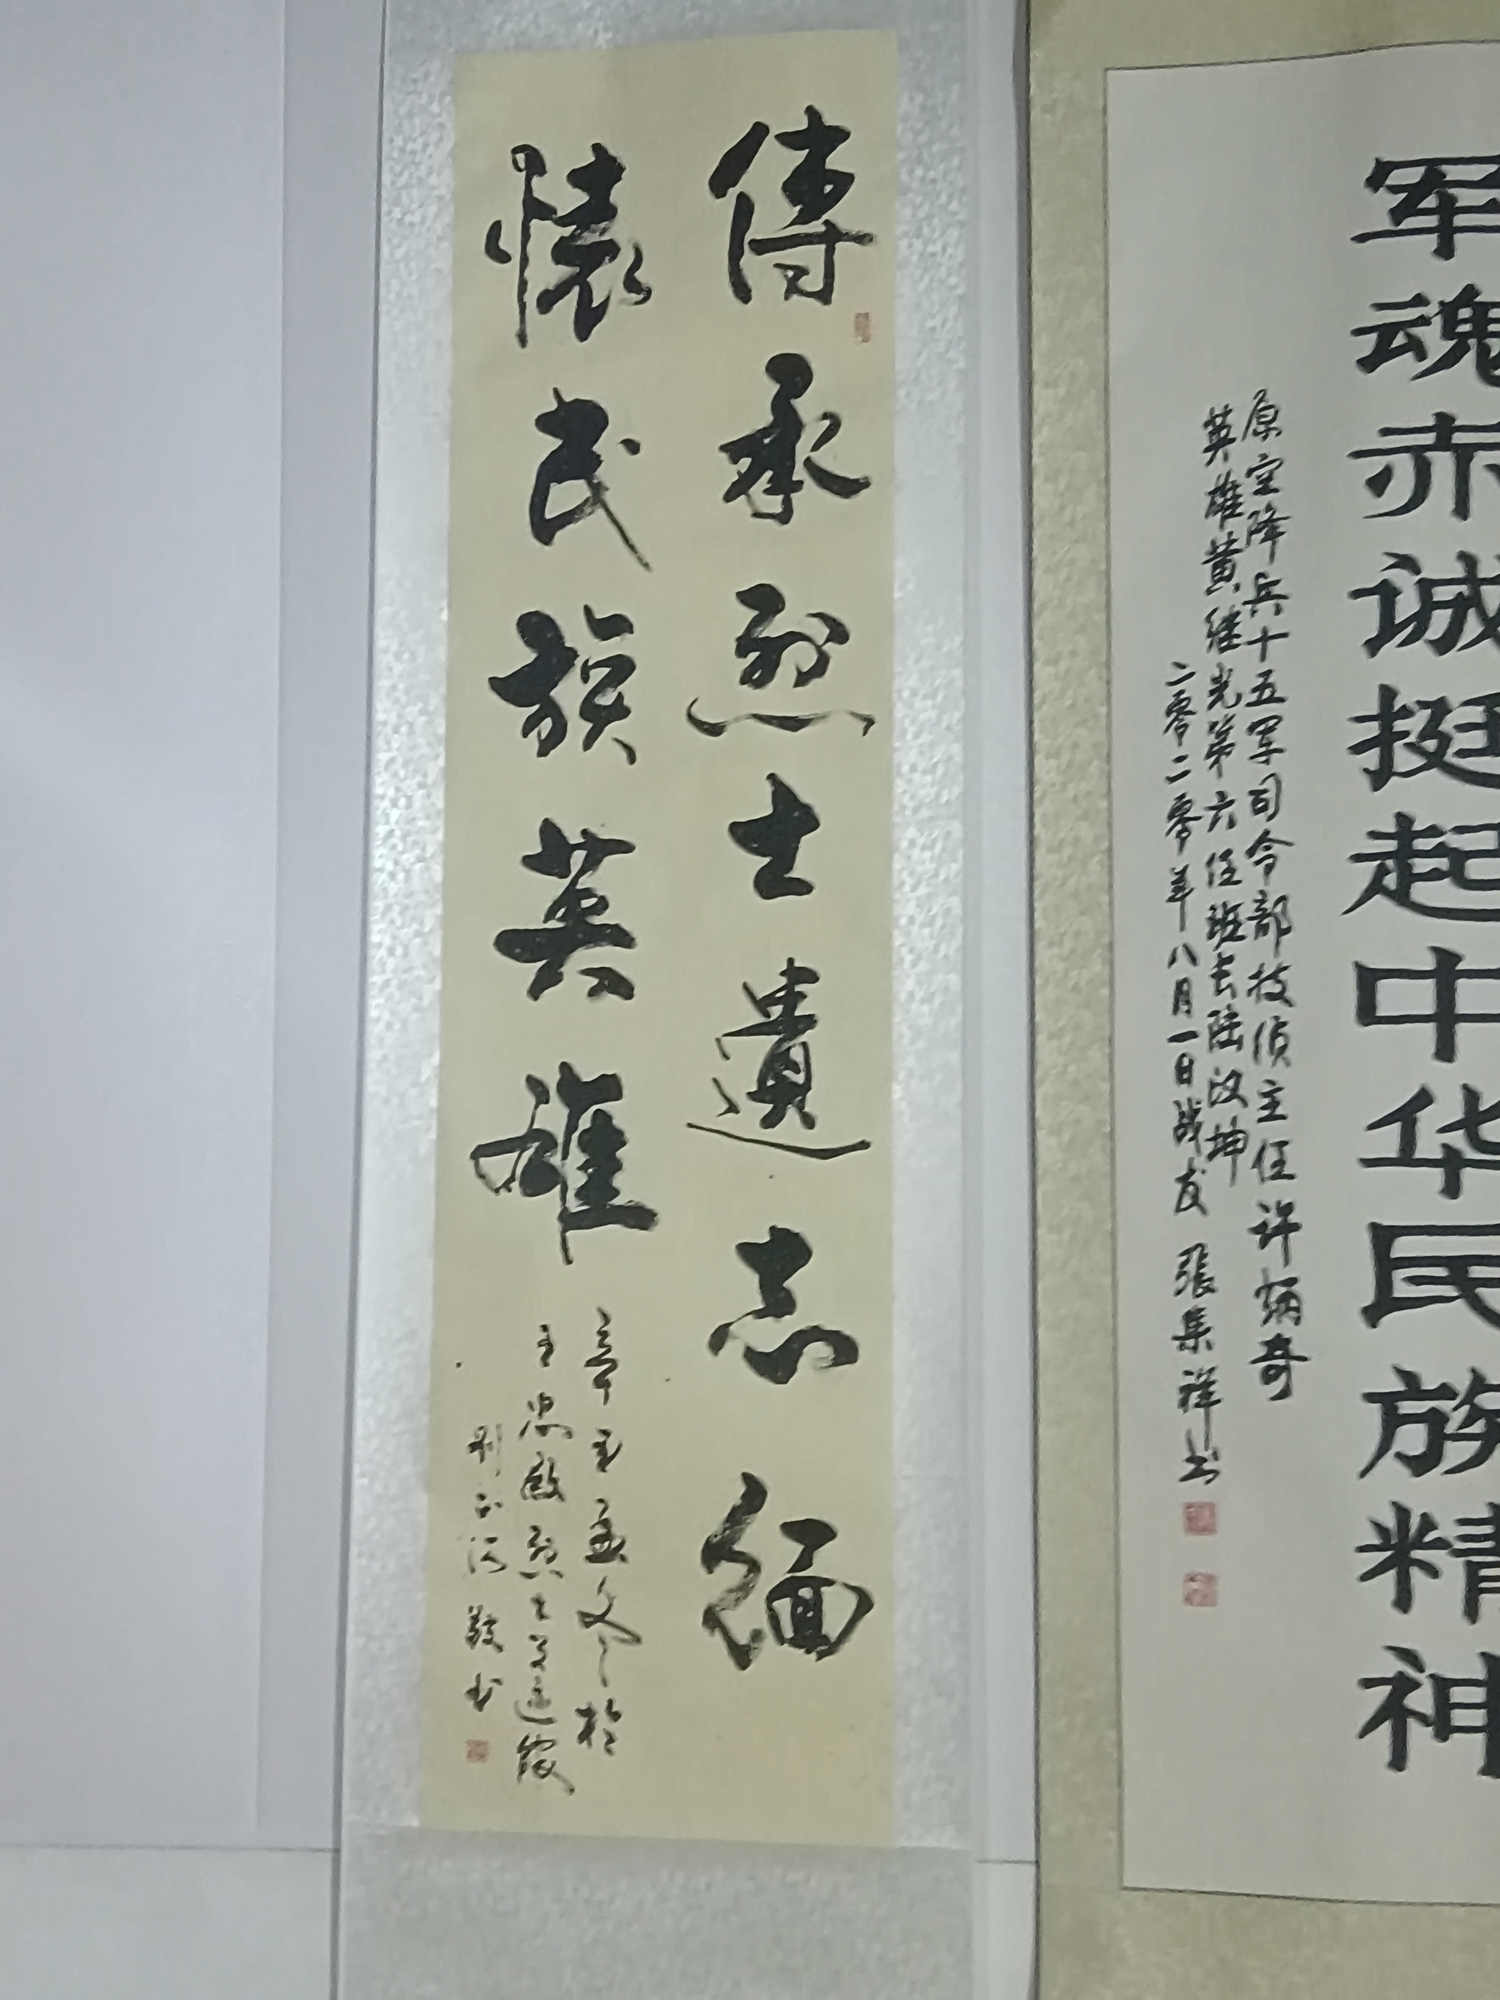 军魂赤诚挺起中华民族精神
原空降兵十五军司令部技侦主任许炳奇
英雄黄继光第六任班长陆汉坤
二零二零年八月一日战友 張集祥书
傳承烈士遺志缅
懷民族英雄
辛丑孟冬於
王忠殿烈士
敬书